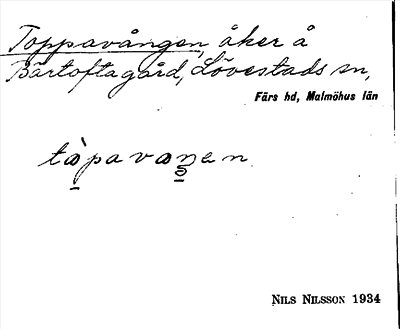 Toppavången, åker å
Bärtoftagård, Lövestads sn,
Färs hd, Malmöhus län
tòpavaŋen
NILS NILSSON 1934